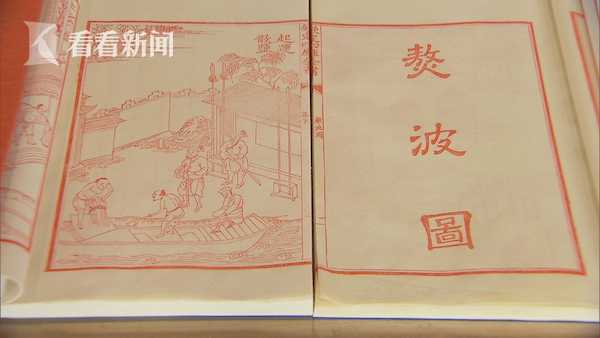 看看新闻
起運
散鹽
熬
波
圖